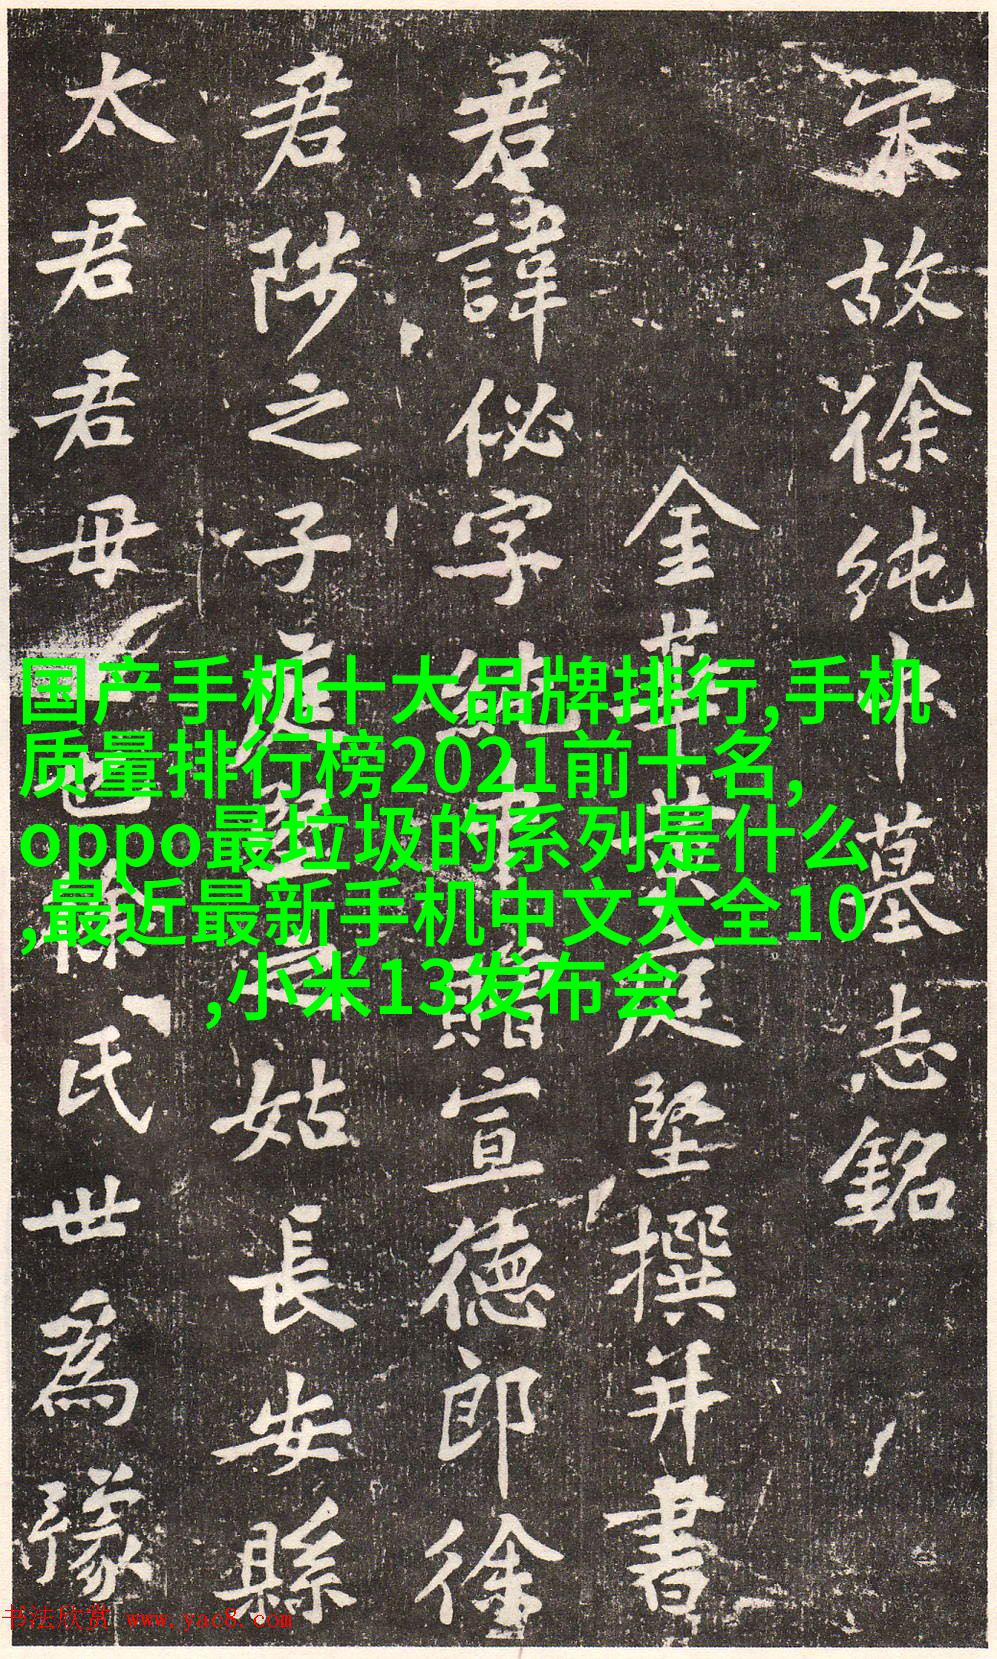 宋故徐纯中墓志銘
金華黄庭堅撰并書
君諱佖字純中贈宣德郎徐
君陟之子姑長安縣
太君君母也徐氏世為豫
国产手机十大品牌排行,手机
质量排行榜2021前十名,
oppo最垃圾的系列是什么
,最近最新手机中文大全10
,小米13发布会
书法欣赏 www.yac8.com